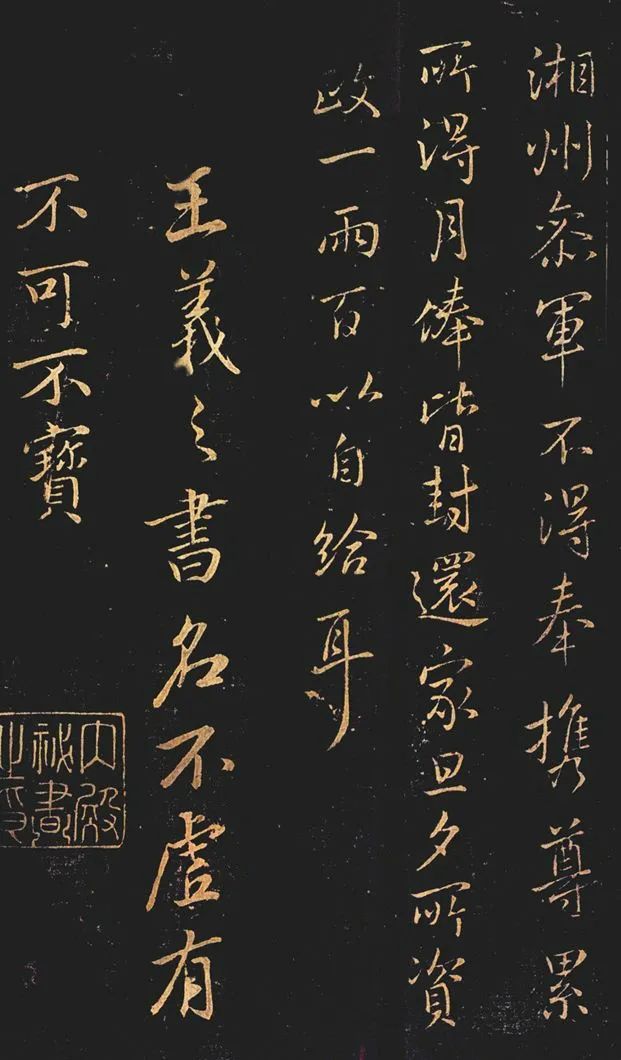 湘州叅軍不得奉攜尊累
所得月俸皆封還家旦夕所資
政一兩百以自給耳
王羲之書名不虛有
不可不寶
内殿
祕書
之印